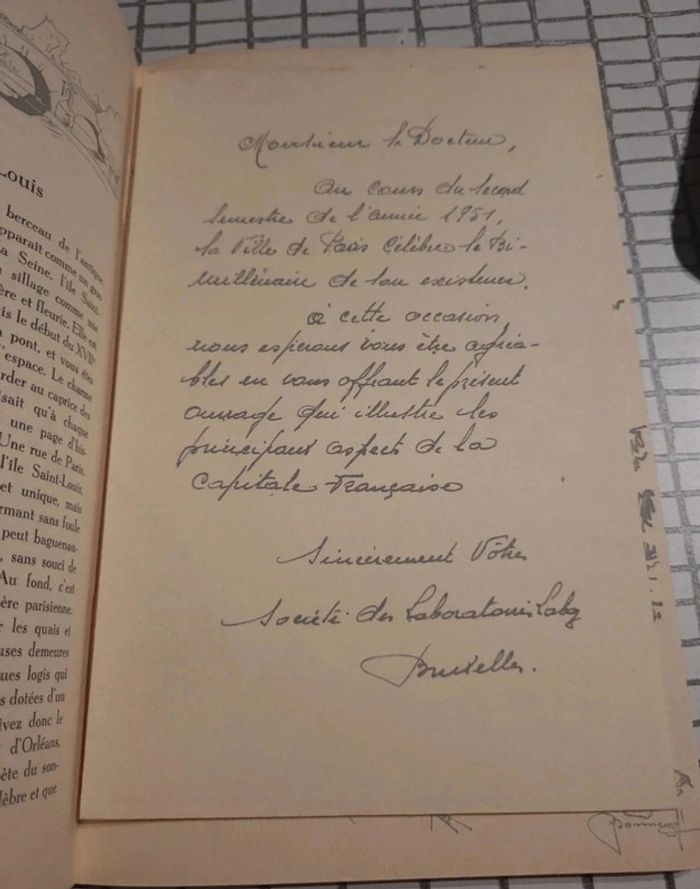 Louis
berceau de l'antique
apparaît comme un gros
la Seine, l'île Saint-
sillage comme une
ère et fleurie. Elle est
is le début du XVIIe
pont, et vous êtes
espace. Le charme
rder au caprice des
isait qu'à chaque
une page d'his-
Une rue de Paris,
l'île Saint-Louis,
et unique, mais
rmant sans foule
peut baguenau-
, sans souci de
Au fond, c'est
ère parisienne.
r les quais et
uses demeures
ues logis qui
s dotées d'un
ivez donc le
d'Orléans,
ète du son-
lèbre et que
Monsieur le Docteur,
Au cours du second
semestre de l'année 1951,
la Ville de Paris célèbre le Bi-
millénaire de son existence.
A cette occasion,
nous espérons vous être agréa-
bles en vous offrant le présent
ouvrage qui illustre les
principaux aspects de la
Capitale Française
Sincèrement Vôtre
Société des Laboratoires Labq
Bruxelles.